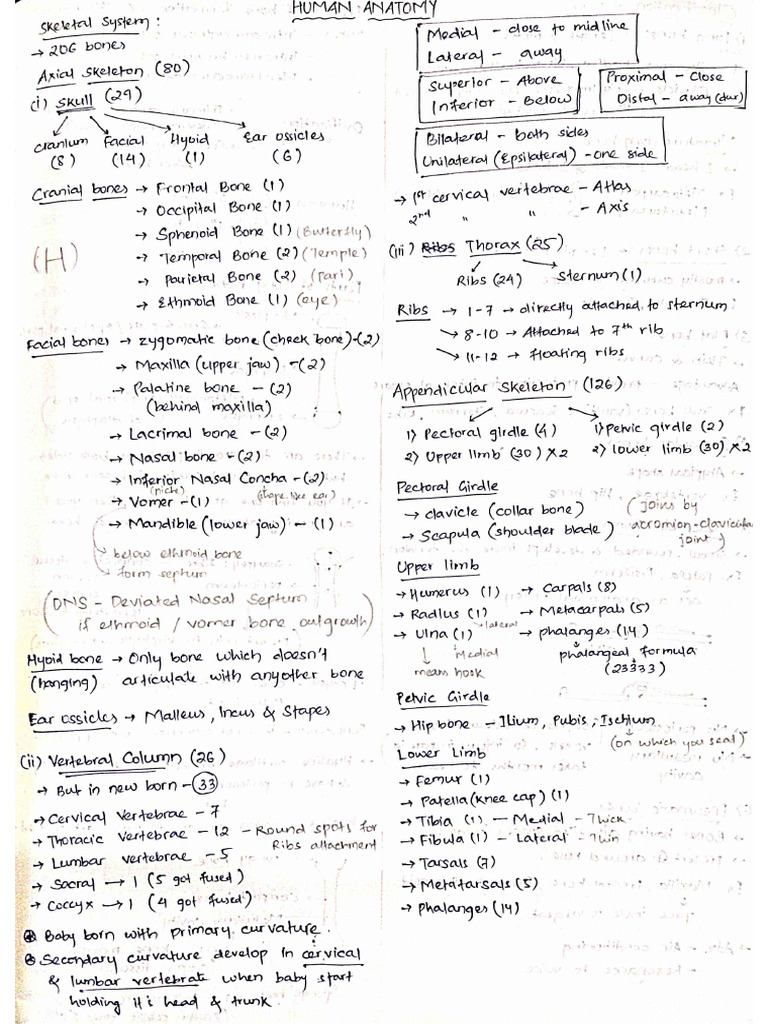 HUMAN ANATOMY
Skeletal System:
→ 206 bones
Axial Skeleton (80)
(i) Skull (29)
Cranium (8) Facial (14) Hyoid (1) Ear ossicles (6)
Cranial bones → Frontal Bone (1)
→ Occipital Bone (1)
→ Sphenoid Bone (1) (Butterfly)
(H) → Temporal Bone (2) (Temple)
→ Parietal Bone (2) (Pari)
→ Ethmoid Bone (1) (eye)
Facial bones → zygomatic bone (cheek bone)-(2)
→ Maxilla (upper jaw) -(2)
→ Palatine bone - (2)
(behind maxilla)
→ Lacrimal bone -(2)
→ Nasal bone -(2)
→ Inferior Nasal Concha -(2)
(shape like ear)
→ Vomer -(1)
→ Mandible (lower jaw) - (1)
→ below ethmoid bone
→ form septum
(DNS - Deviated Nasal Septum
if ethmoid / vomer bone outgrowth)
Hyoid bone → Only bone which doesn't
(hanging) articulate with anyother bone
Ear ossicles → Malleus, Incus & Stapes
(ii) Vertebral Column (26)
→ But in new born - 33
→ Cervical Vertebrae - 7
→ Thoracic Vertebrae - 12 - Round spots for
Ribs attachment
→ Lumbar vertebrae - 5
→ Sacral → 1 (5 got fused)
→ Coccyx → 1 (4 got fused)
⊛ Baby born with primary curvature.
⊛ Secondary curvature develop in cervical
& lumbar vertebrate when baby start
holding it's head & trunk.
Medial - close to midline
Lateral - away
Superior - Above
Inferior - Below
Proximal - Close
Distal - away (dur)
Bilateral - both sides
Unilateral (Epsilateral) - one side
→ 1st cervical vertebrae - Atlas
2nd " " - Axis
(iii) Ribs Thorax (25)
Ribs (24) Sternum (1)
Ribs → 1-7 → directly attached to sternum:
→ 8-10 → Attached to 7th rib
→ 11-12 → floating ribs
Appendicular Skeleton (126)
1) Pectoral girdle (4) 1) Pelvic girdle (2)
2) Upper limb (30) ×2 2) lower limb (30) ×2
Pectoral Girdle
→ clavicle (collar bone)
→ Scapula (shoulder blade)
(joins by
acromion-clavicular
joint)
Upper limb
→ Humerus (1) → Carpals (8)
→ Radius (1) → Metacarpals (5)
→ lateral
→ Ulna (1) → phalanges (14)
↓ Medial phalangeal formula
means hook (23333)
Pelvic Girdle
→ Hip bone - Ilium, Pubis, Ischium
(on which you seat)
Lower Limb
→ Femur (1)
→ Patella (knee cap) (1)
→ Tibia (1) - Medial - Thick
→ Fibula (1) - Lateral - Thin
→ Tarsals (7)
→ Metatarsals (5)
→ Phalanges (14)